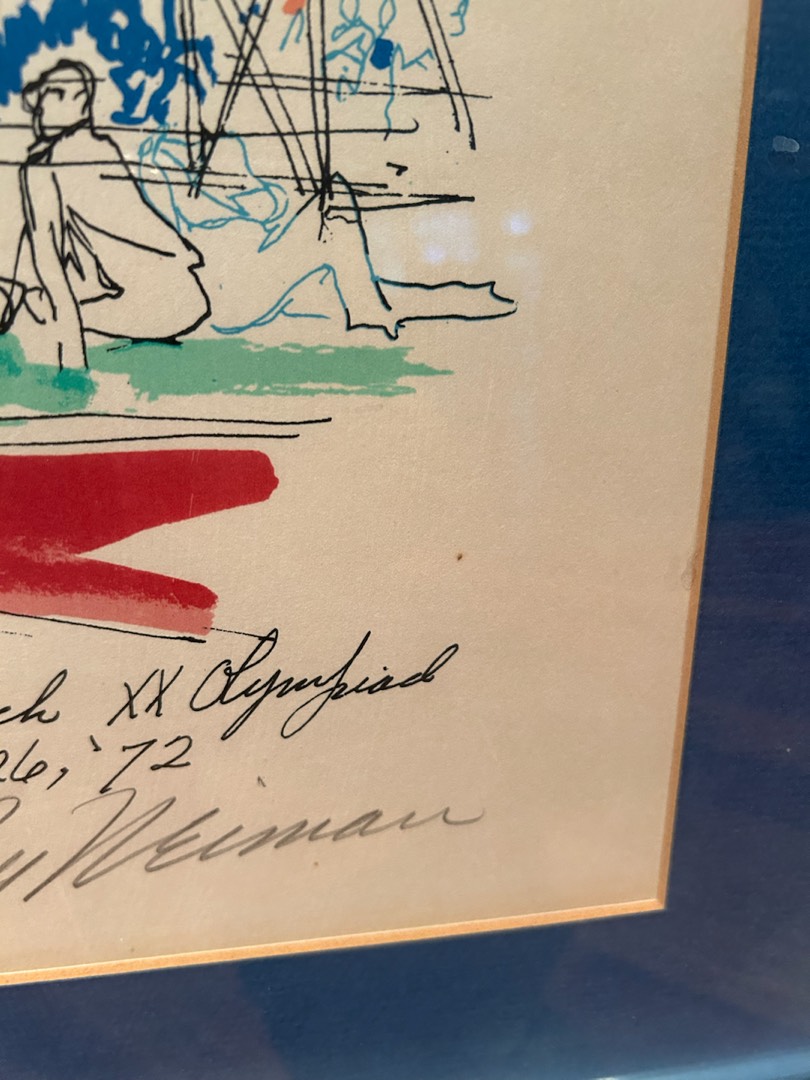 XX Olympiad
26, '72
Neiman